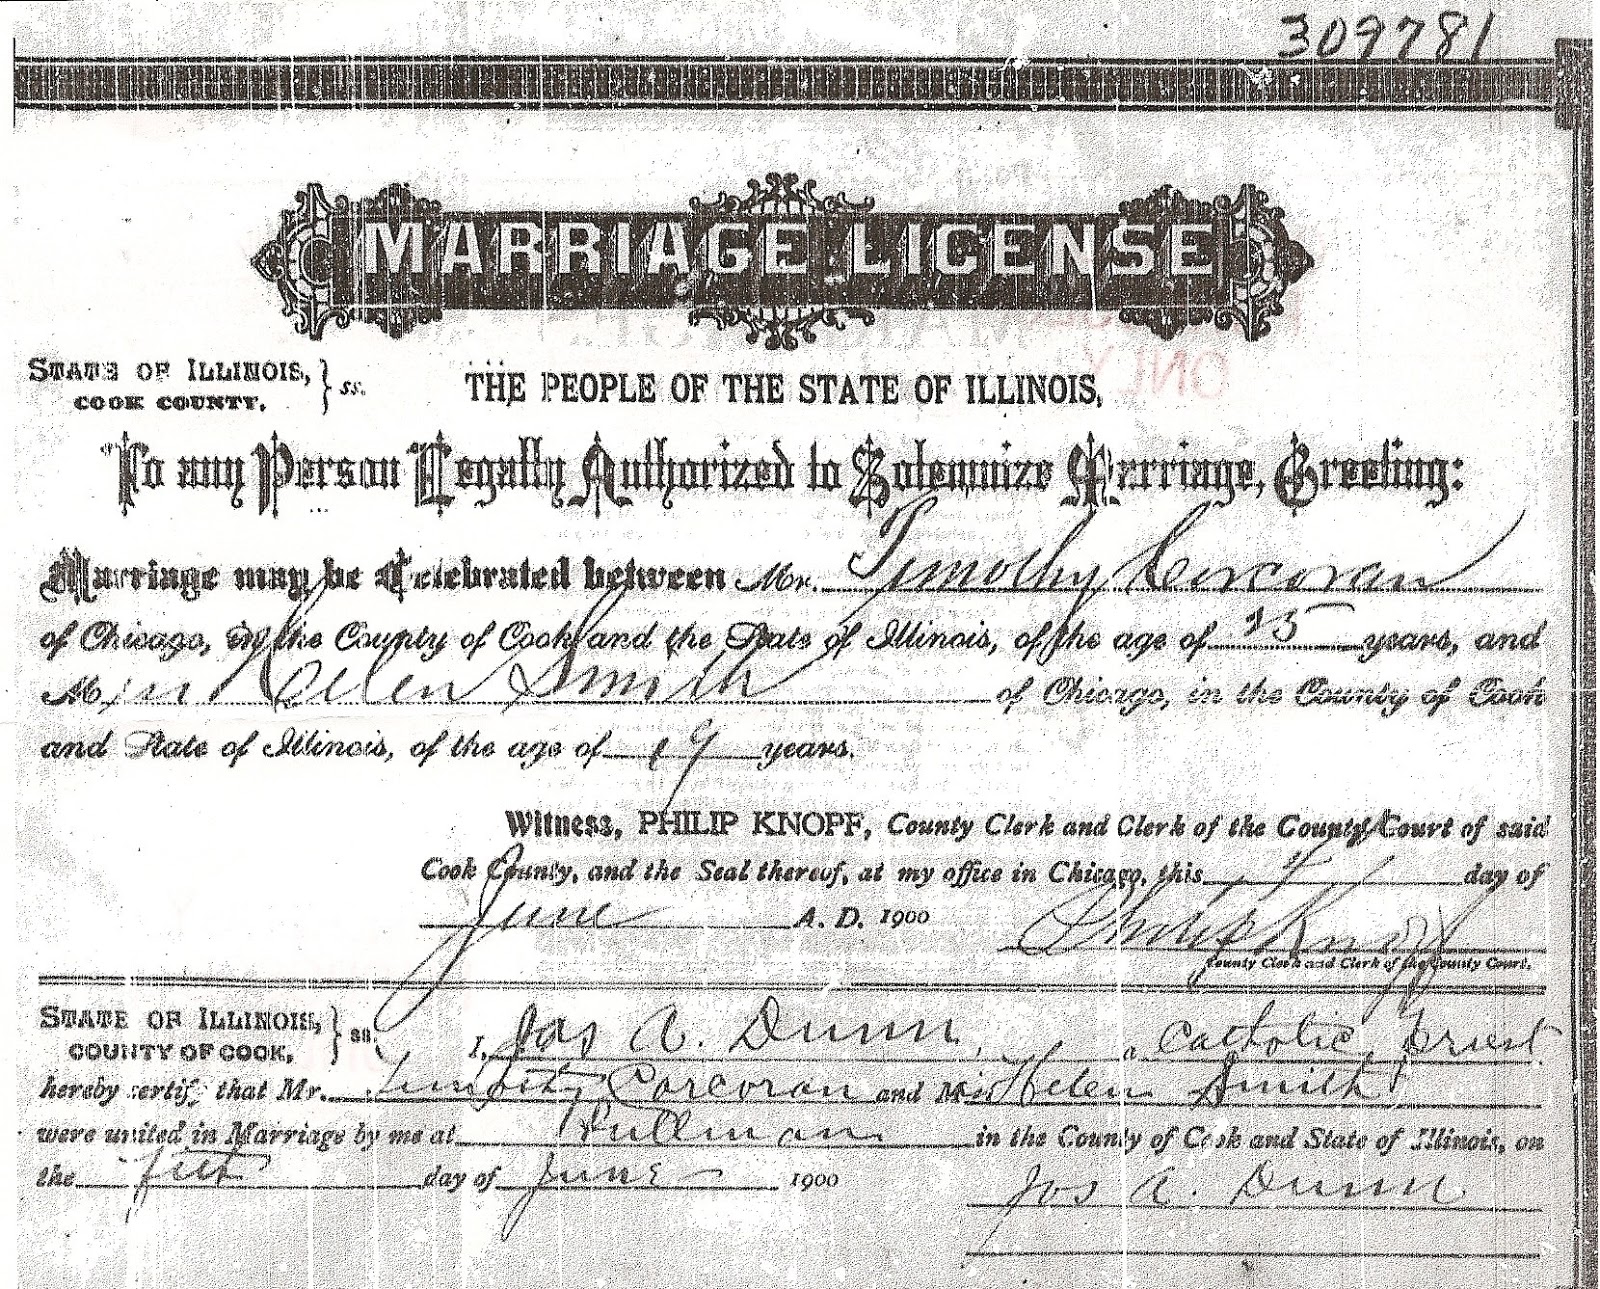 309781
MARRIAGE LICENSE
STATE OF ILLINOIS, } ss.
COOK COUNTY.
THE PEOPLE OF THE STATE OF ILLINOIS,
To any Person Legally Authorized to Solemnize Marriage, Greeting:
Marriage may be Celebrated between Mr. Timothy Corcoran
of Chicago, in the County of Cook and the State of Illinois, of the age of 25 years, and
Miss Ellen Smith of Chicago, in the County of Cook
and State of Illinois, of the age of 19 years.
Witness, PHILIP KNOPF, County Clerk and Clerk of the County Court of said
Cook County, and the Seal thereof, at my office in Chicago, this 4 day of
June A. D. 1900 Philip Knopf
County Clerk and Clerk of the County Court.
STATE OF ILLINOIS, } ss.
COUNTY OF COOK,
I, Jos A. Dunn, a Catholic priest
hereby certify that Mr. Timothy Corcoran and Miss Helen Smith
were united in Marriage by me at Pullman in the County of Cook and State of Illinois, on
the fifth day of June 1900
Jos A. Dunn
ONLY